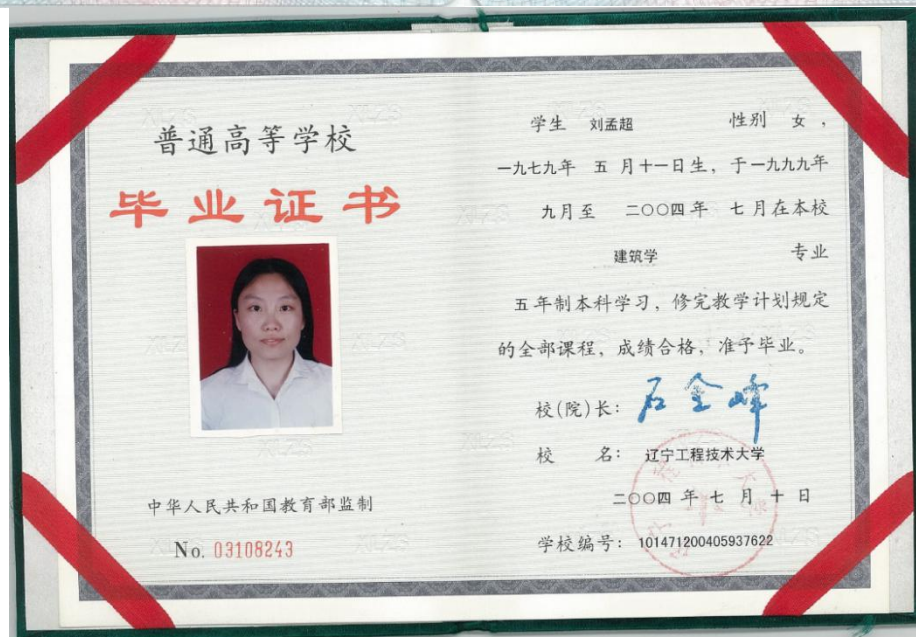 普通高等学校
毕业证书
中华人民共和国教育部监制
No. 03108243
学生 刘孟超 性别 女，
一九七九年 五 月十一日生，于一九九九年
九月至 二〇〇四年 七 月在本校
建筑学 专业
五年制本科学习，修完教学计划规定
的全部课程，成绩合格，准予毕业。
校(院)长： 石金峰
校 名： 辽宁工程技术大学
二〇〇四 年 七 月 十 日
学校编号： 101471200405937622